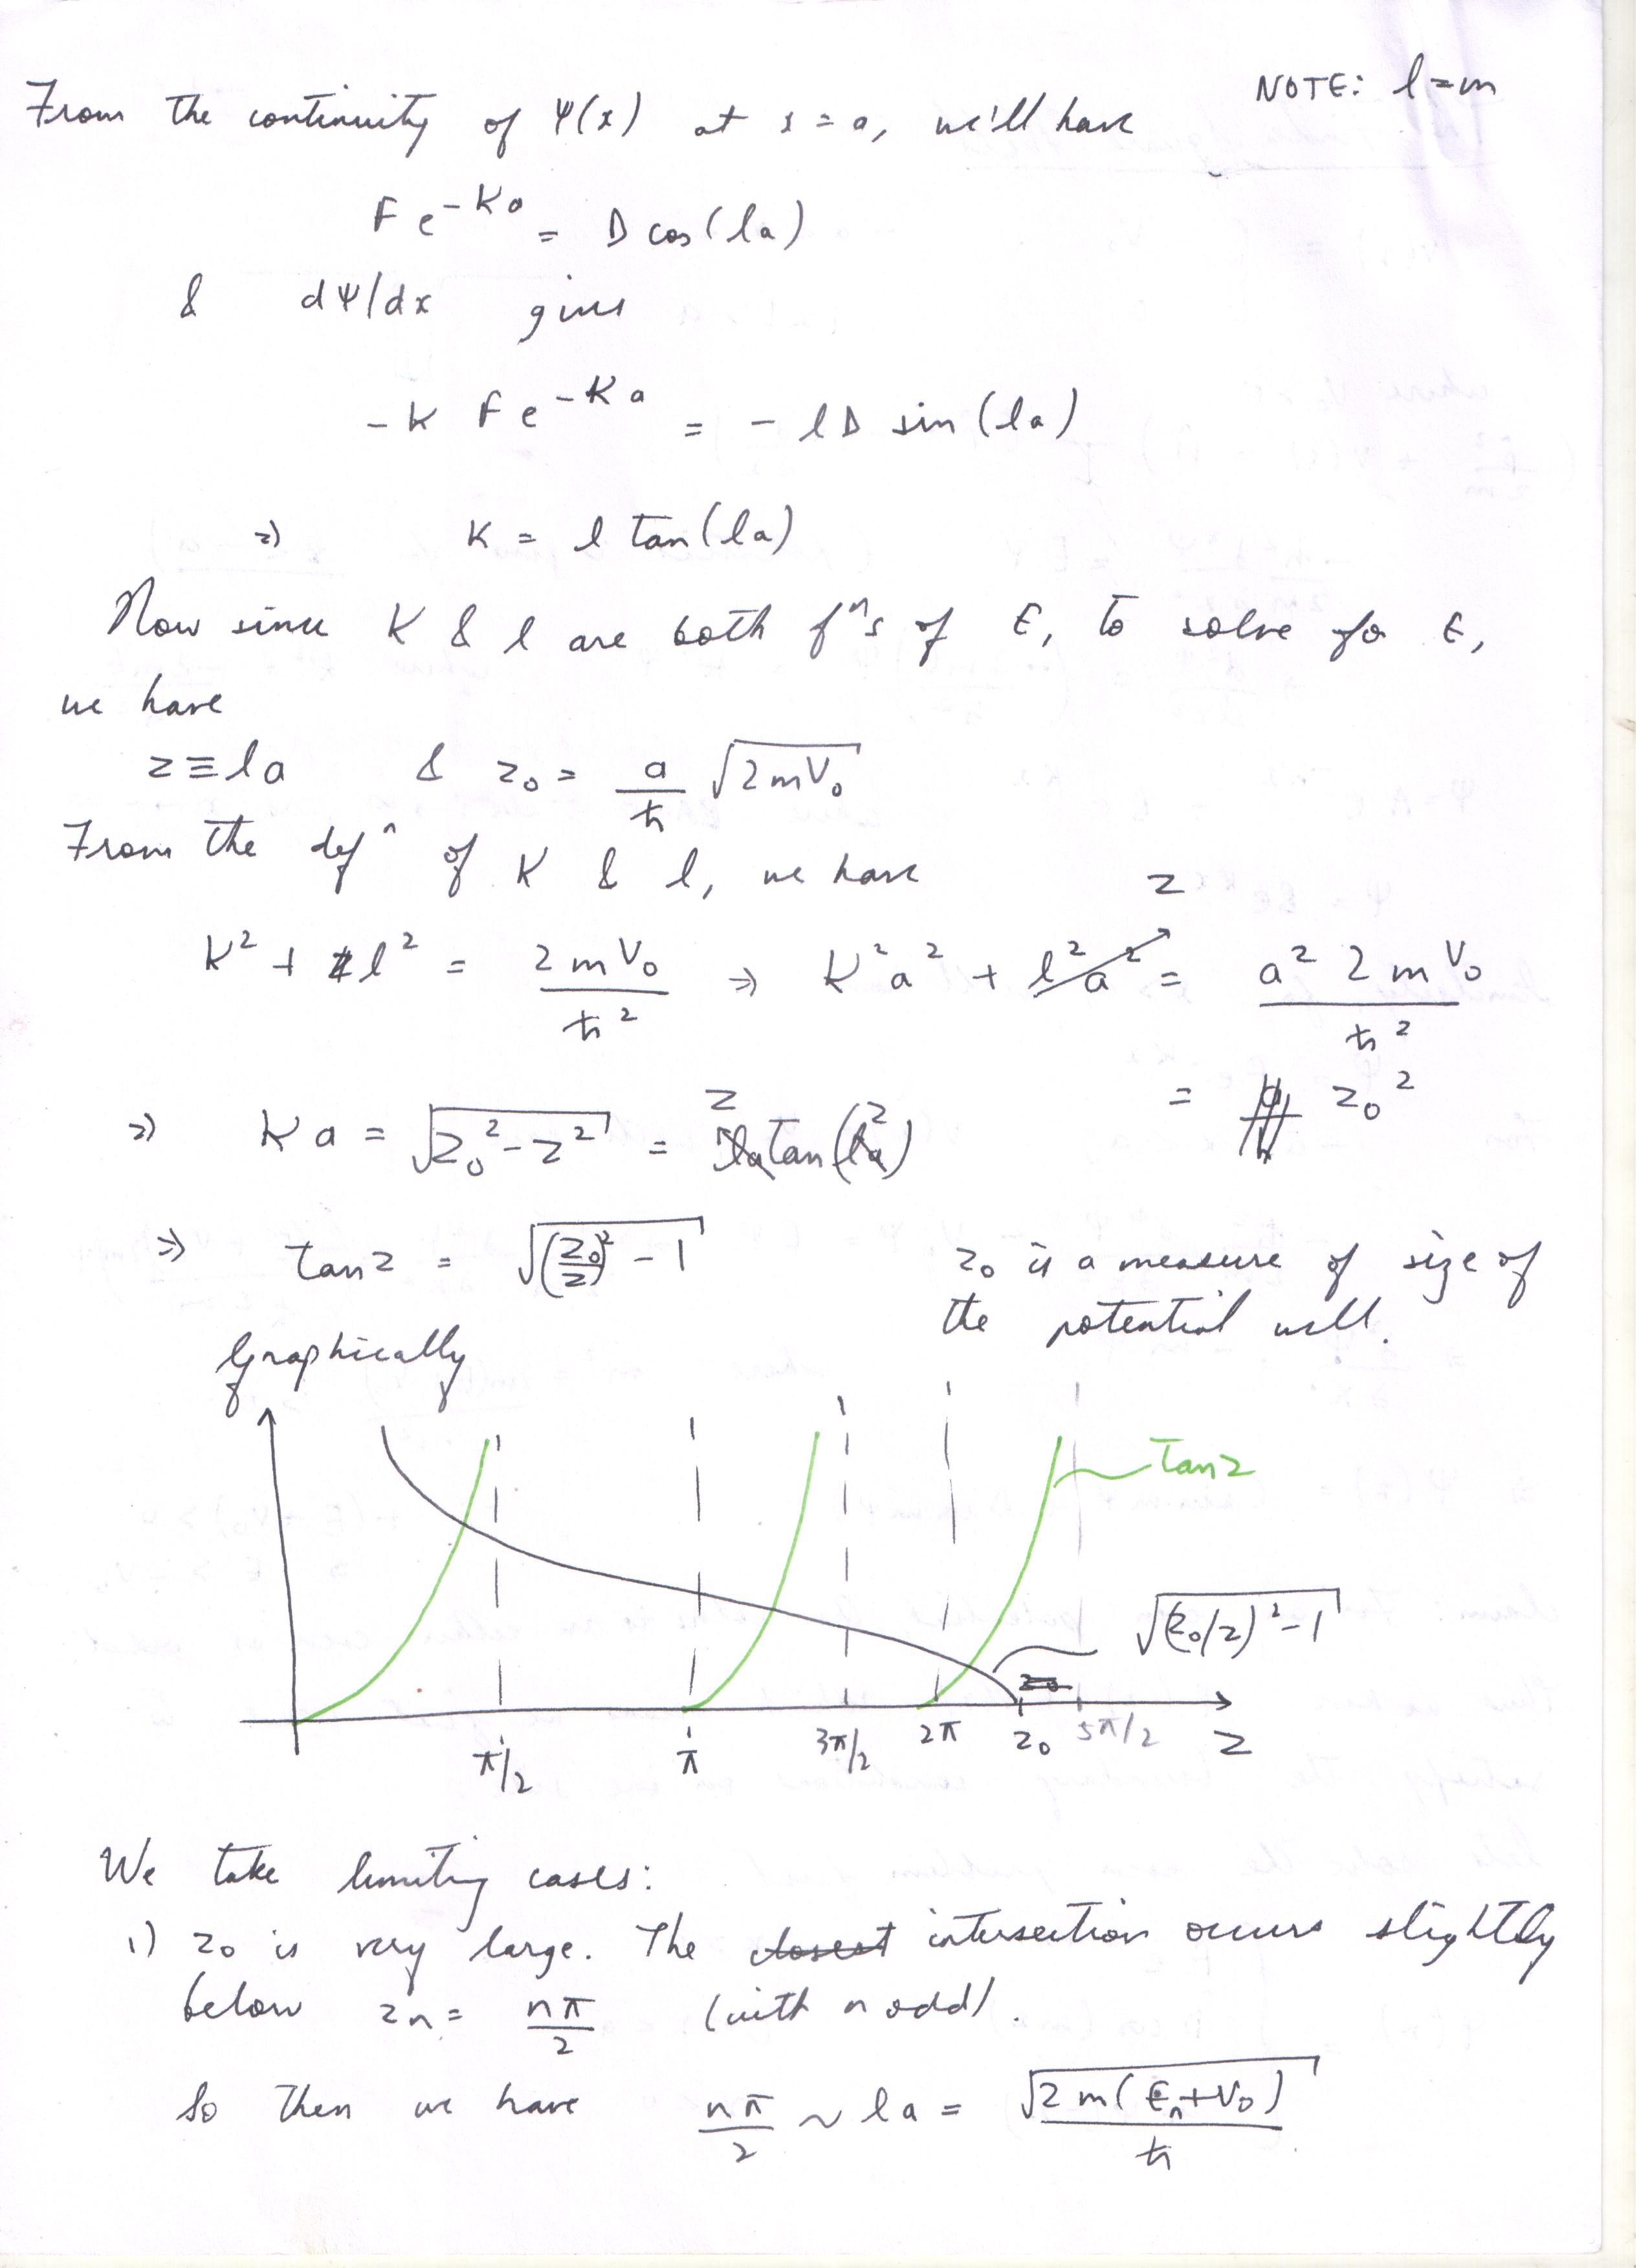 NOTE: l=m
From the continuity of Ψ(x) at x = a, we'll have
F e^{-Ka} = D cos(la)
& dΨ/dx gives
-K F e^{-Ka} = - lD sin(la)
⇒ K = l tan(la)
Now since K & l are both fⁿs of E, to solve for E,
we have
z ≡ la & z₀ = a/ħ √(2mV₀)
From the defⁿ of K & l, we have
z
K² + l² = 2mV₀/ħ² ⇒ K²a² + l²a² = a² 2mV₀/ħ²
= z₀²
⇒ Ka = √(z₀² - z²) = z tan(z)
⇒ tan z = √((z₀/z)² - 1)
z₀ is a measure of size of
the potential well.
Graphically
tan z
√((z₀/z)² - 1)
π/2 π 3π/2 2π z₀ 5π/2 z
We take limiting cases:
1) z₀ is very large. The closest intersection occurs slightly
below zₙ = nπ/2 (with n odd).
So then we have nπ/2 ~ la = √(2m(Eₙ+V₀))/ħ